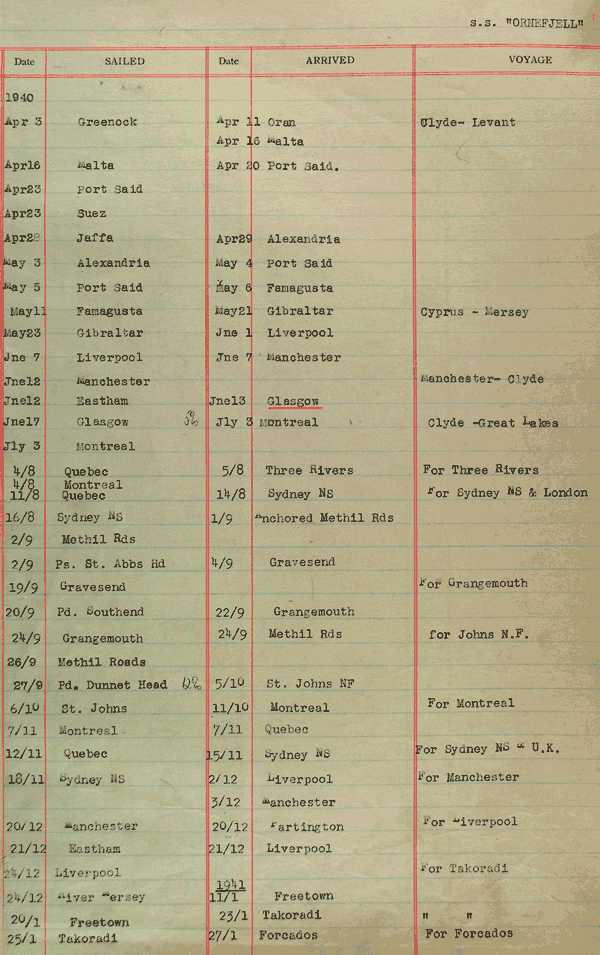 S.S. "ORNEFJELL"
Date SAILED Date ARRIVED VOYAGE
1940
Apr 3 Greenock Apr 11 Oran Clyde- Levant
Apr 16 Malta
Apr16 Malta Apr 20 Port Said.
Apr23 Port Said
Apr23 Suez
Apr28 Jaffa Apr29 Alexandria
May 3 Alexandria May 4 Port Said
May 5 Port Said May 6 Famagusta
May11 Famagusta May21 Gibraltar Cyprus - Mersey
May23 Gibraltar Jne 1 Liverpool
Jne 7 Liverpool Jne 7 Manchester
Jne12 Manchester Manchester- Clyde
Jne12 Eastham Jne13 Glasgow
Jne17 Glasgow Jly 3 Montreal Clyde -Great Lakes
Jly 3 Montreal
4/8 Quebec 5/8 Three Rivers For Three Rivers
4/8 Montreal
11/8 Quebec 14/8 Sydney NS For Sydney NS & London
16/8 Sydney NS 1/9 Anchored Methil Rds
2/9 Methil Rds
2/9 Ps. St. Abbs Hd 4/9 Gravesend
19/9 Gravesend For Grangemouth
20/9 Pd. Southend 22/9 Grangemouth
24/9 Grangemouth 24/9 Methil Rds for Johns N.F.
26/9 Methil Roads
27/9 Pd. Dunnet Head 5/10 St. Johns NF
6/10 St. Johns 11/10 Montreal For Montreal
7/11 Montreal 7/11 Quebec
12/11 Quebec 15/11 Sydney NS For Sydney NS & U.K.
18/11 Sydney NS 2/12 Liverpool For Manchester
3/12 Manchester
20/12 Manchester 20/12 Partington For Liverpool
21/12 Eastham 21/12 Liverpool
24/12 Liverpool For Takoradi
1941
24/12 River Mersey 11/1 Freetown
20/1 Freetown 23/1 Takoradi " "
25/1 Takoradi 27/1 Forcados For Forcados